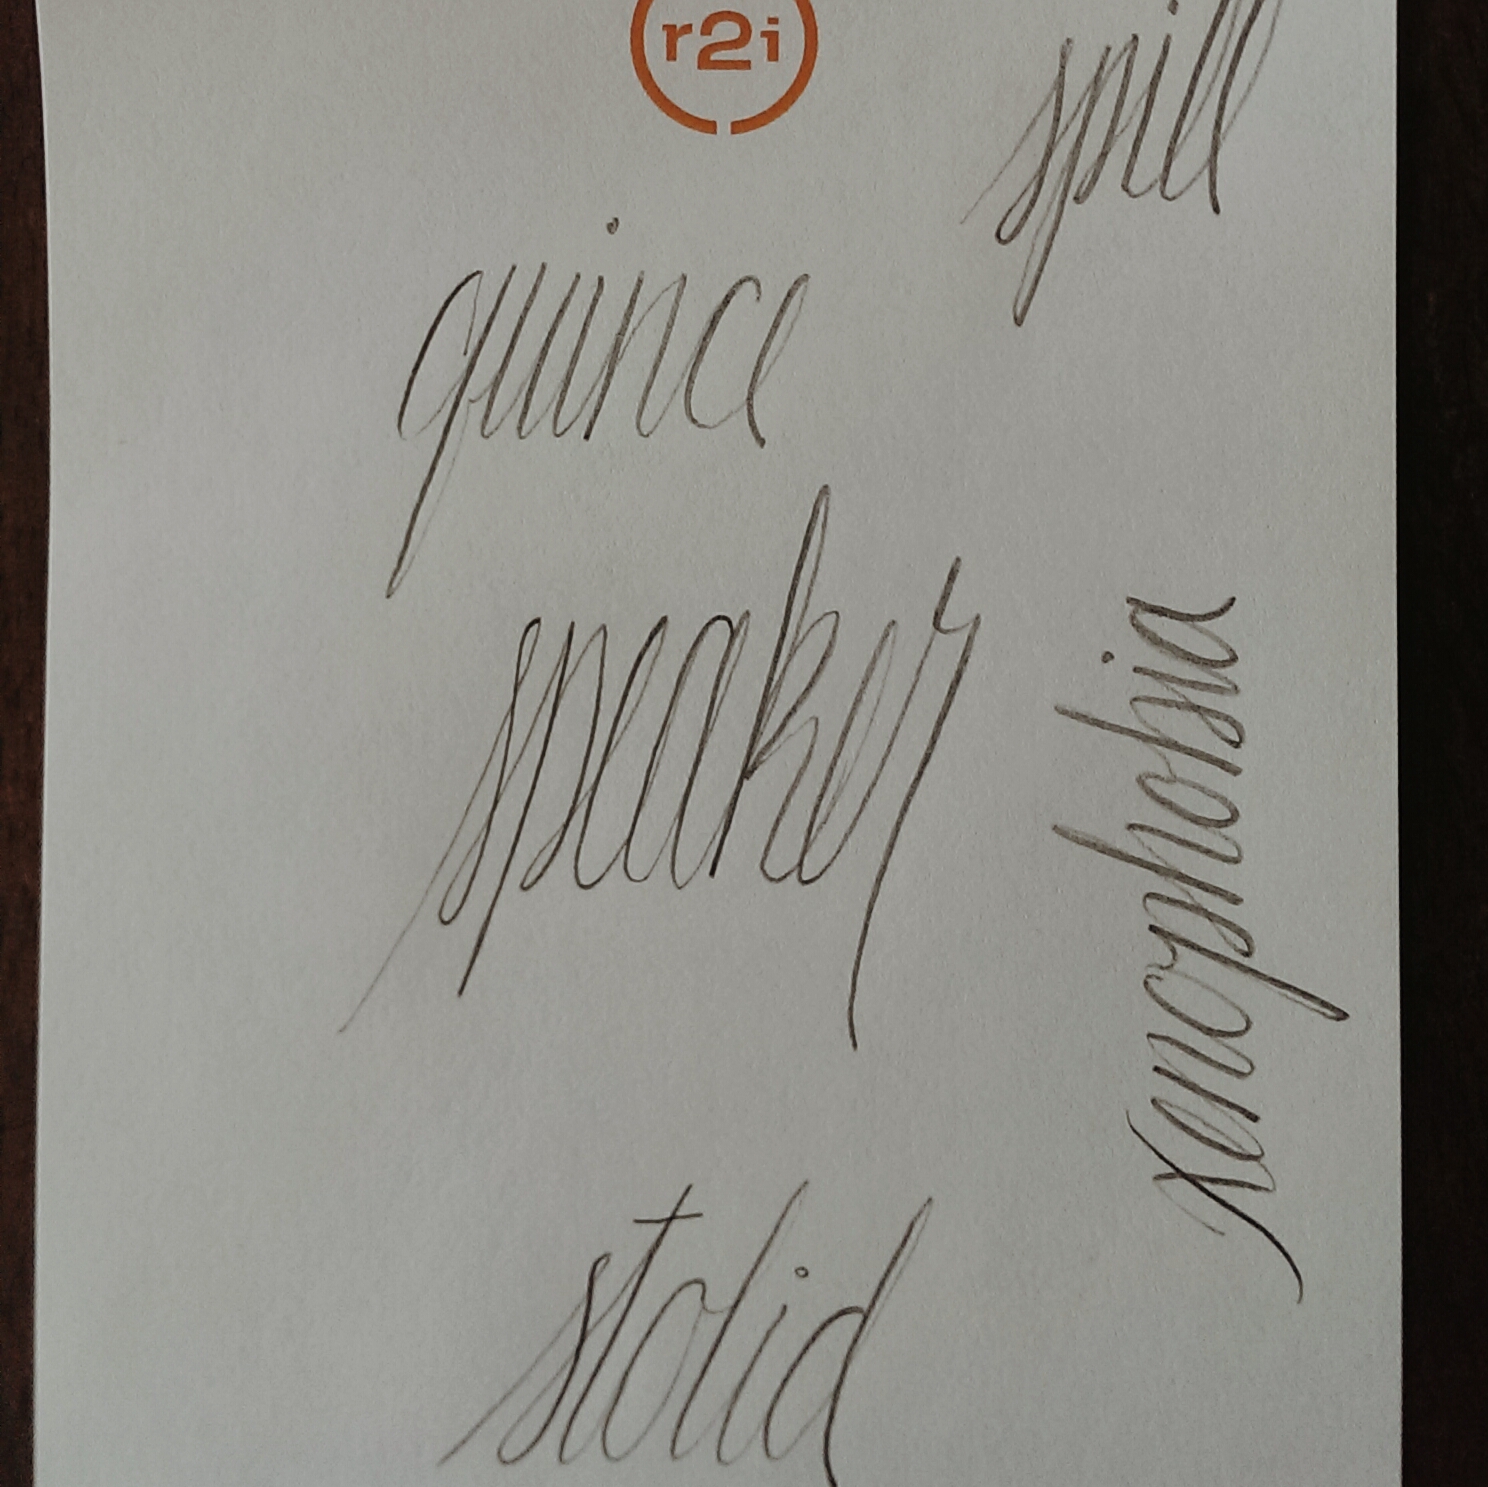 r2i
spill
quince
speaker
xenophobia
stolid